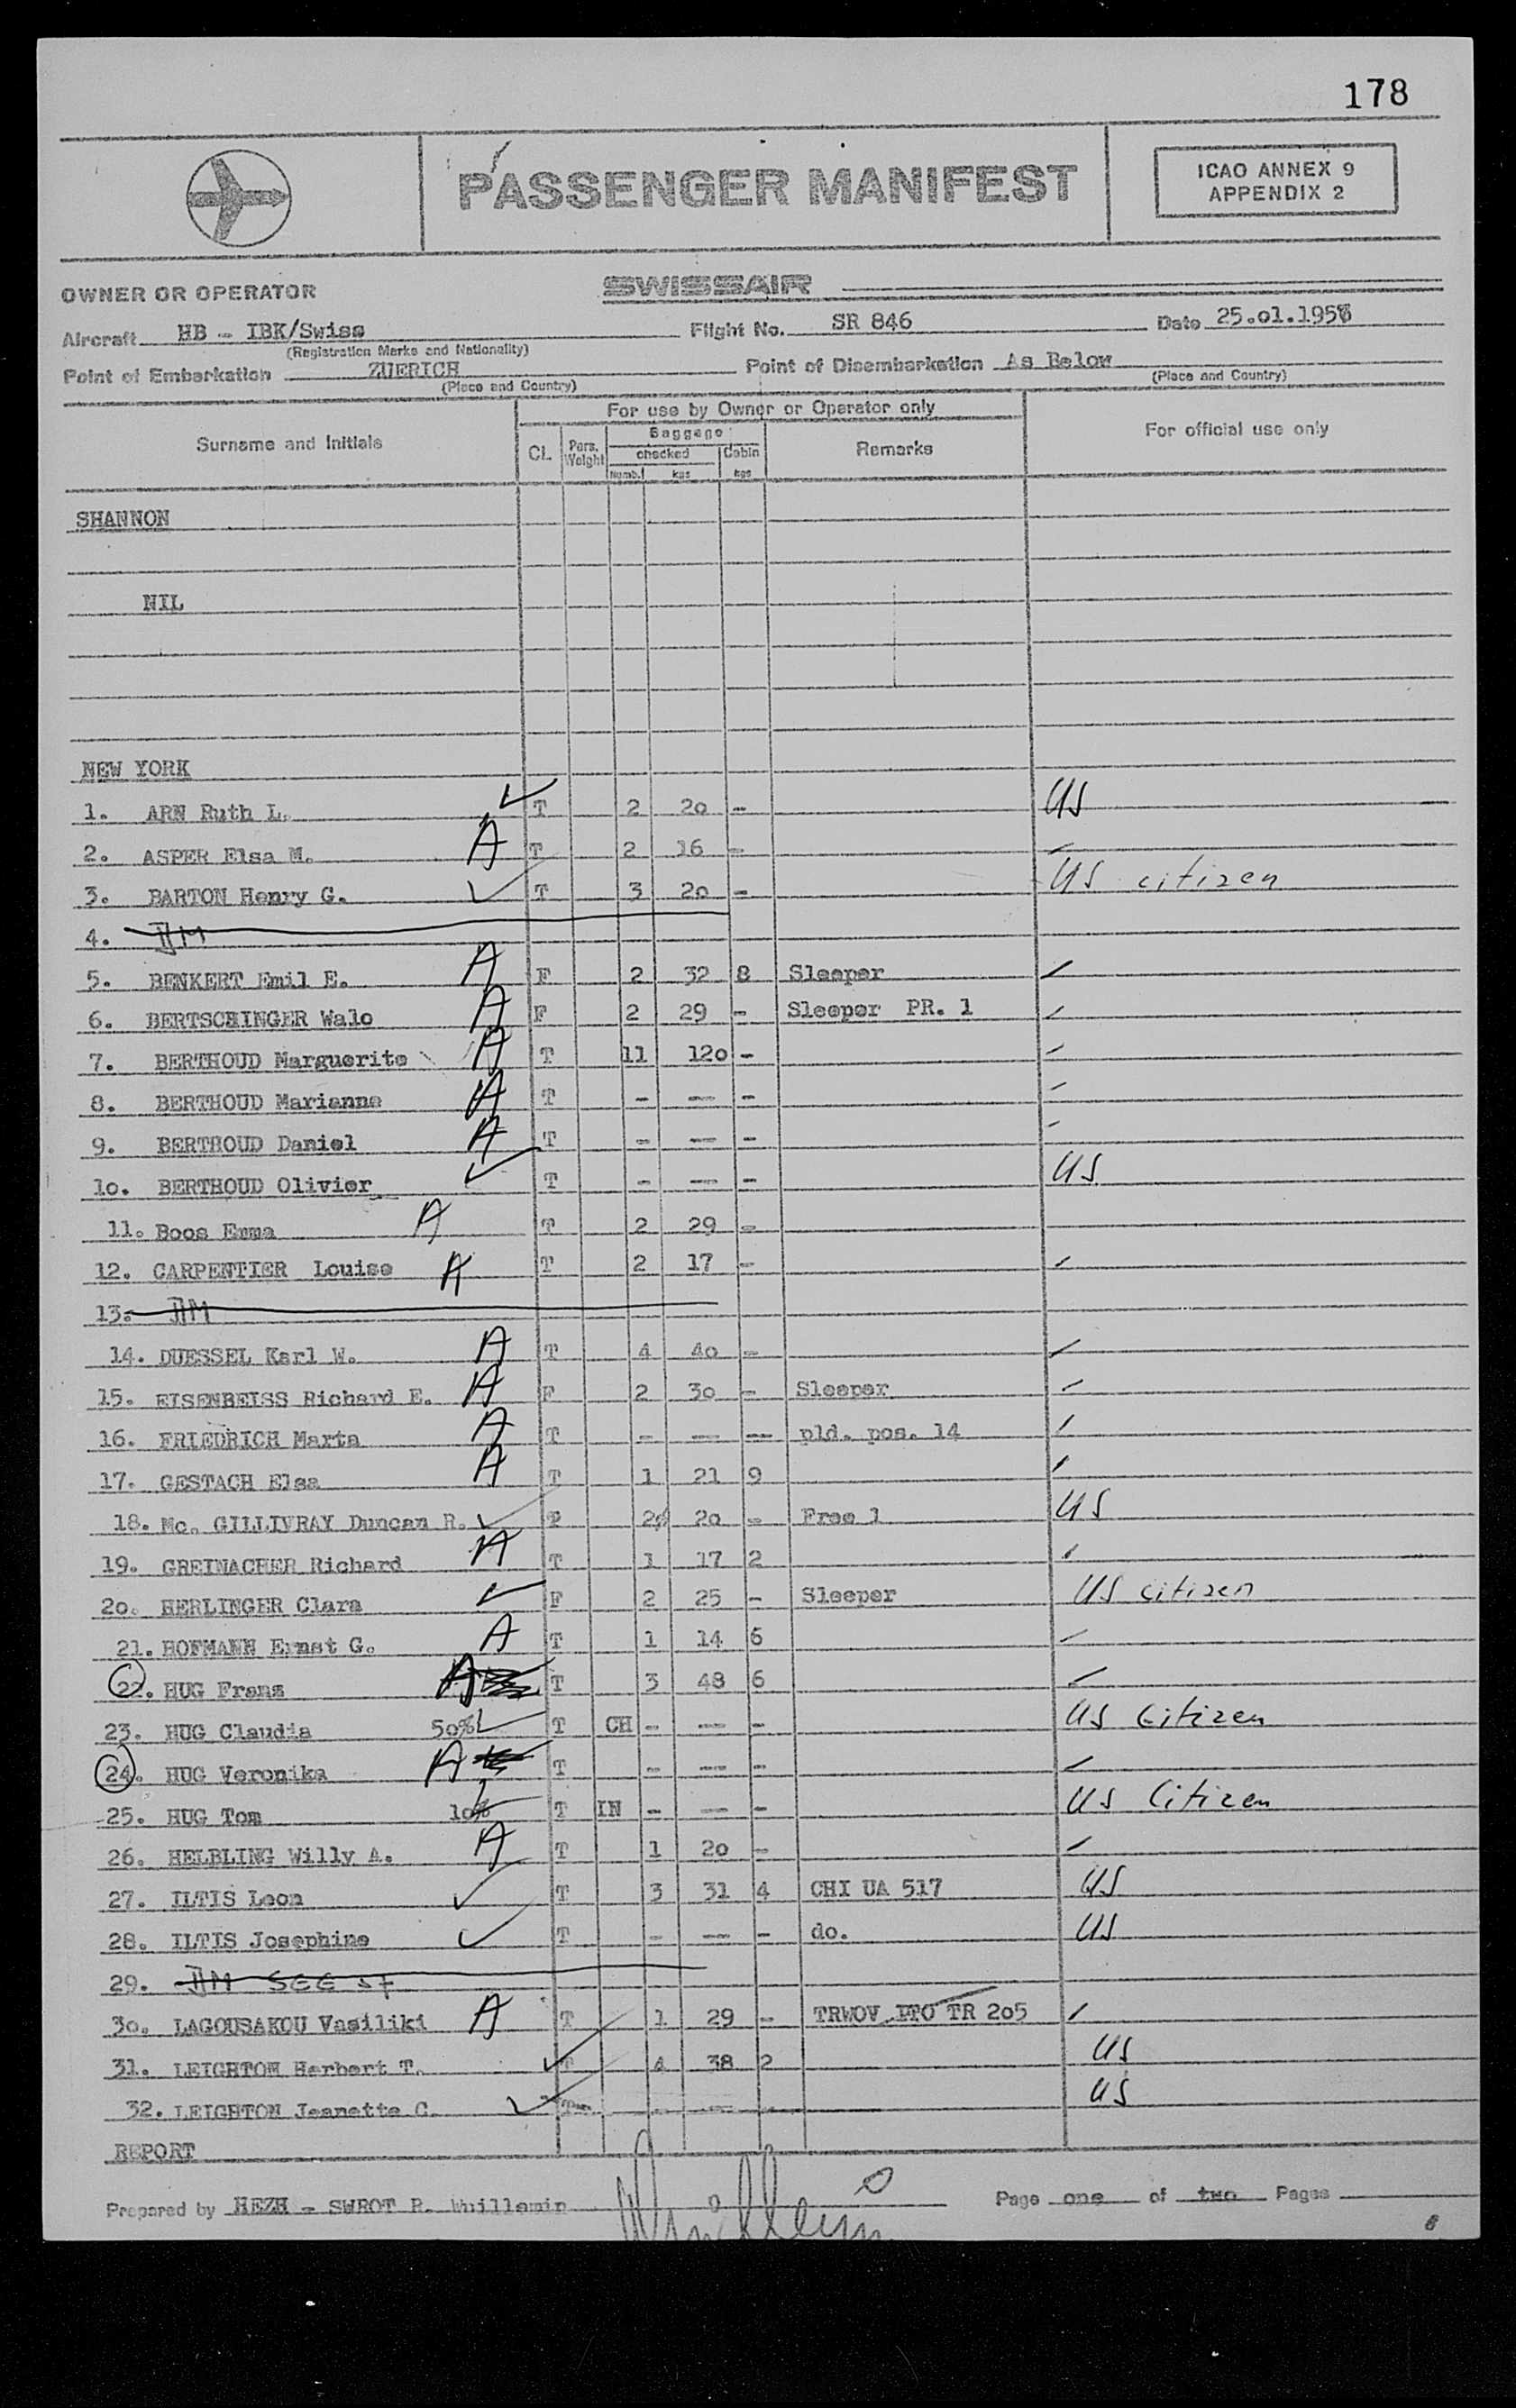 178
PASSENGER MANIFEST
ICAO ANNEX 9
APPENDIX 2
OWNER OR OPERATOR SWISSAIR
Aircraft HB - IBK/Swiss Flight No. SR 846 Date 25.01.1958
(Registration Marks and Nationality)
Point of Embarkation ZUERICH Point of Disembarkation As Below
(Place and Country) (Place and Country)
Surname and Initials For use by Owner or Operator only For official use only
Cl. Pers. Weight Baggage checked Numb. kgs Cabin kgs Remarks
SHANNON
NIL
NEW YORK
1. ARN Ruth L. T 2 20 - US
2. ASPER Elsa M. A T 2 16 -
3. BARTON Henry G. T 3 20 - US citizen
4.
5. BENKERT Emil E. A F 2 32 8 Sleeper
6. BERTSCHINGER Walo A F 2 29 - Sleeper PR. 1
7. BERTHOUD Marguerite A T 11 120 -
8. BERTHOUD Marianne A T - -- -
9. BERTHOUD Daniel A T - -- -
10. BERTHOUD Olivier T - -- - US
11. Boos Emma A T 2 29 -
12. CARPENTIER Louise A T 2 17 -
13.
14. DUESSEL Karl W. A T 4 40 -
15. EISENBEISS Richard E. A F 2 30 - Sleeper
16. FRIEDRICH Marta A T - -- -- pld. pos. 14
17. GESTACH Elsa A T 1 21 9
18. Mc. GILLIVRAY Duncan R. T 2 20 - Free 1 US
19. GREINACHER Richard A T 1 17 2
20. HERLINGER Clara F 2 25 - Sleeper US citizen
21. HOFMANN Ernst G. A T 1 14 6
22. HUG Franz A T 3 48 6
23. HUG Claudia 50% T CH - -- - US Citizen
24. HUG Veronika A T - -- -
25. HUG Tom 10% T IN - -- - US Citizen
26. HELBLING Willy A. A T 1 20 -
27. ILTIS Leon T 3 31 4 CHI UA 517 US
28. ILTIS Josephine T - -- - do. US
29. SEE
30. LAGOUSAKOU Vasiliki A T 1 29 - TRWOV PTO TR 205
31. LEIGHTON Herbert T. T 4 38 2 US
32. LEIGHTON Jeanette C. T - -- - US
REPORT
Prepared by HEZH - SWROT R. Wuillemin Page one of two Pages